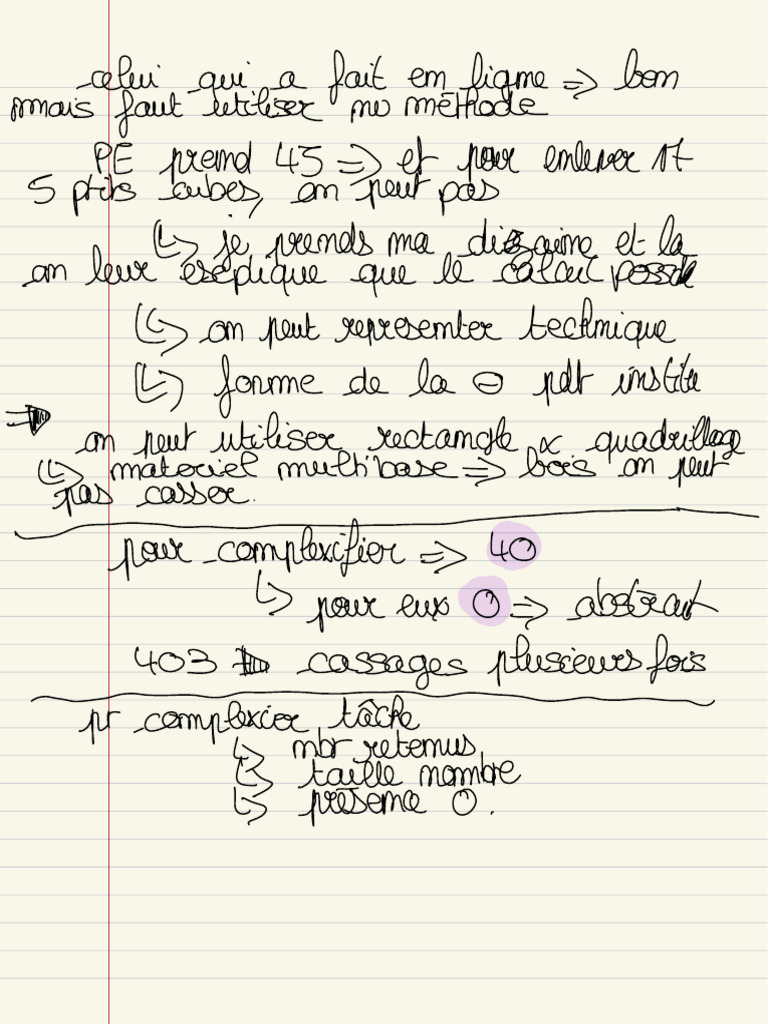 celui qui a fait en ligne => bon
mais faut utiliser nv méthode
PE prend 45 => et pour enlever 17
5 ptits cubes, on peut pas
↳ je prends ma dizaine et la
on leur explique que le calcul posé
↳ on peut representer technique
↳ forme de la ⊖ pdt instit
=> on peut utiliser rectangle quadrillage
↳ materiel multibase => bois on peut
pas casser.
pour complexifier => 40
↳ pour eux 0 => abstrait
403 => cassages plusieurs fois
pr complexier tâche
↳ nbr retenus
↳ taille nombre
↳ présence 0.